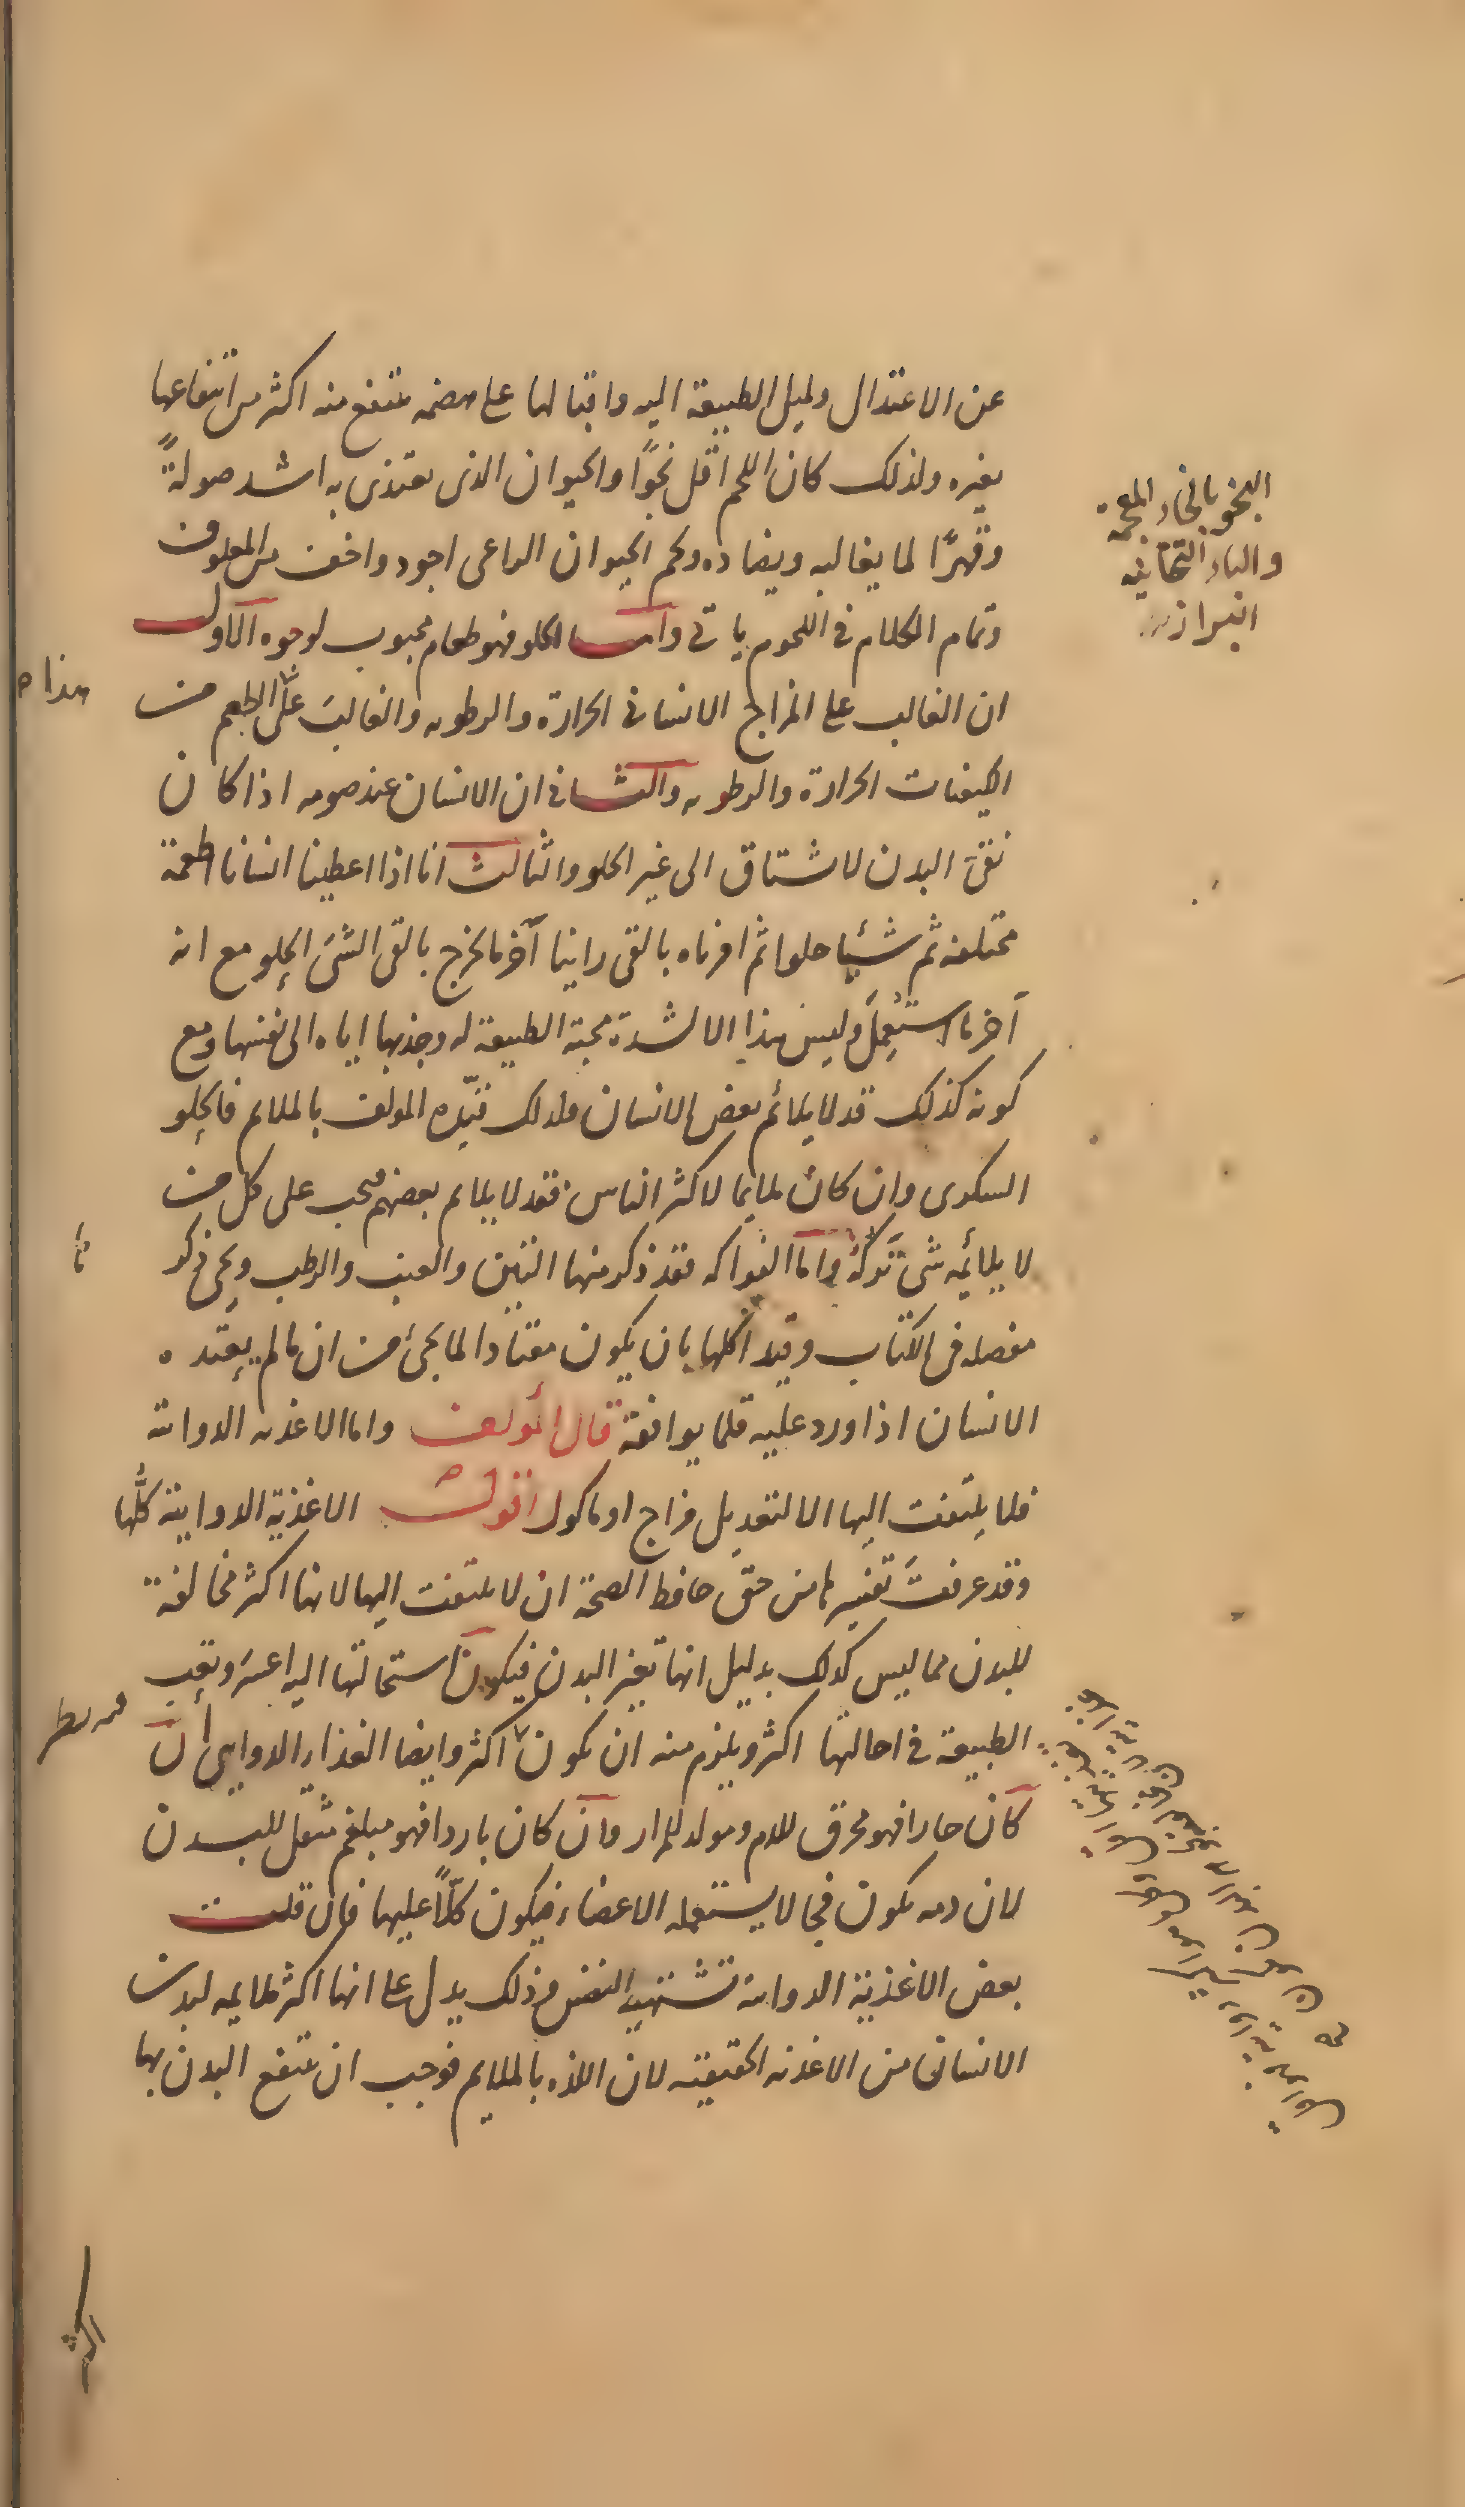 عن الاعتدال ولميل الطبيعة اليه واقبالها على هضمه ينتفع منه اكثر من انتفاعها
بغيره ولذلك كان اللحم اقل نجوًا والحيوان الذى يغتذى به اشد صولةً
وقهرًا لما يغالبه ويضاده ولحم الحيوان الراعى اجود واخف من المعلوف
وتمام الكلام فى اللحوم ياتى واما الحلو فهو طعام محبوب لوجوه الاول
ان الغالب على المزاج الانسانى الحرارة والرطوبه والغالب على الطعم من
الكيفيات الحرارة والرطوبه والثانى ان الانسان عند صومه اذا كان
نقى البدن لا يشتاق الى غير الحلو والثالث انا اذا اعطينا انسانا اطعمة
مختلفه ثم شيئا حلوا ثم امرناه بالقى راينا آخر ما يخرج بالقى الشى الحلو مع انه
آخر ما استُعمِلَ وليس هذا الا لشدة محبة الطبيعة له وجذبها اياه الى نفسها ومع
كونه كذلك قد لا يلائم بعض الانسان ولذلك قيّده المولف بالملايم فالحلو
السكرى وان كان ملايما لاكثر الناس فقد لا يلايم بعضهم فيجب على كل من
لا يلائمه شى تركه واما الفواكه فقد ذكر منها التين والعنب والرطب ويجى ذكر
مفصله فى الكتاب وقيد اكلها بان يكون معتادا لما يجئ من ان ما لم يعتده
الانسان اذا ورد عليه قلما يوافقه قال المولف واما الاغذيه الدوائية
فلا يلتفت اليها الا لتعديل مزاج او ماكول اقول الاغذية الدوائية كلّها
وقد عرفت تفسيرها من حق حافظ الصحة ان لا يلتفت اليها لانها اكثر مخالفة
للبدن مما ليس كذلك بدليل انها تغير البدن فيكون استحالتها اليه اعسر وتعب
الطبيعة فى احالتها اكثر ويلزم منه ان يكون اكثر وايضا الغذاء الدوايى ان
كان حارا فهو محرق للدم ومولد للمرار وان كان باردا فهو مبلغم مثقل للبدن
لان دمه يكون فجا لا يستعمله الاعضاء فيكون كلًّا عليها فان قلت
بعض الاغذية الدوائية تشتهيه النفس وذلك يدل على انها اكثر ملايمه لبدن
الانسان من الاغذيه الحقيقيه لان اللذه بالملايم فوجب ان ينتفع البدن بها
البخو بالخاء المعجمة
والياء التحتانيه
البراز
هذا
فيه نظر